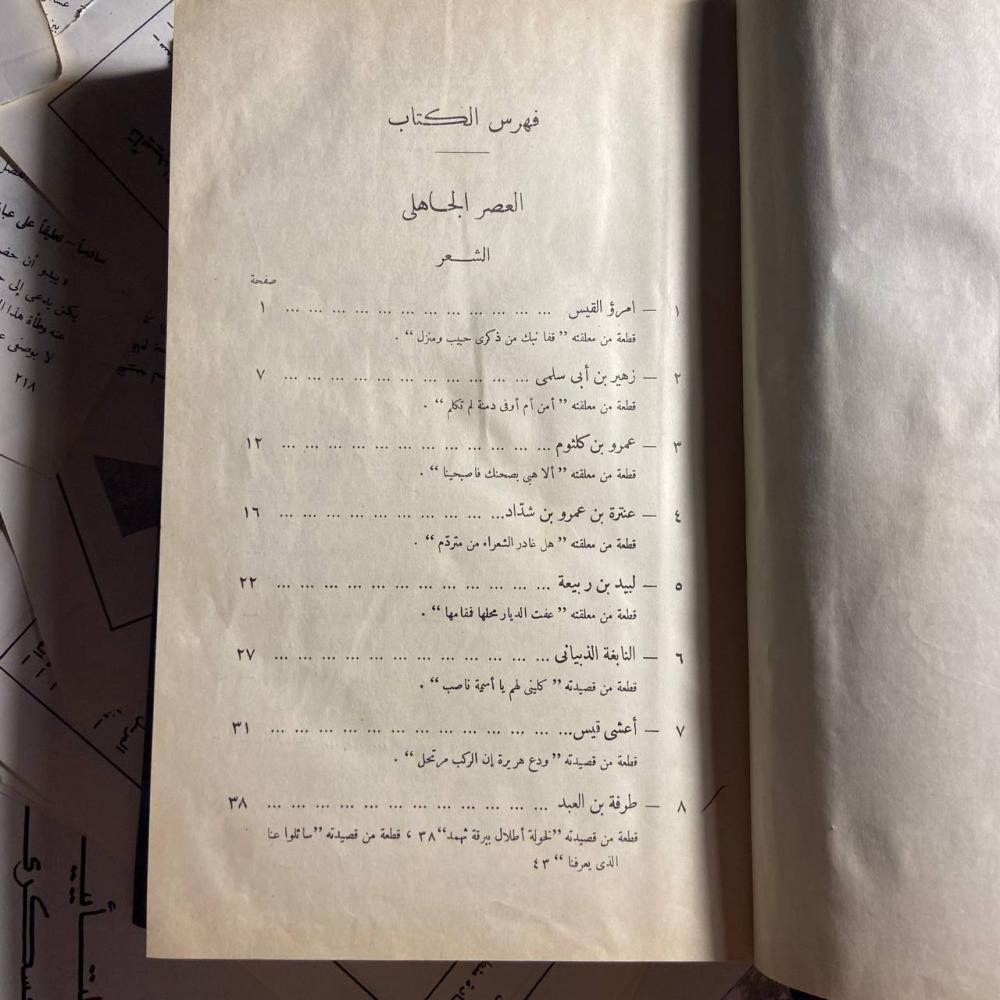 فهرس الكتاب
العصر الجاهلى
الشعر
صفحة
١ — امرؤ القيس ... ... ... ... ... ... ... ... ... ... ... ١
قطعة من معلقته ” قفا نبك من ذكرى حبيب ومنزل “ .
٢ — زهير بن أبى سلمى ... ... ... ... ... ... ... ... ... ... ... ٧
قطعة من معلقته ” أمن أم أوفى دمنة لم تكلم “ .
٣ — عمرو بن كلثوم ... ... ... ... ... ... ... ... ... ... ... ... ١٢
قطعة من معلقته ” ألا هبى بصحنك فاصبحينا “ .
٤ — عنترة بن عمرو بن شدّاد ... ... ... ... ... ... ... ... ... ... ١٦
قطعة من معلقته ” هل غادر الشعراء من متردّم “ .
٥ — لبيد بن ربيعة ... ... ... ... ... ... ... ... ... ... ... ... ٢٢
قطعة من معلقته ” عفت الديار محلها فمقامها “ .
٦ — النابغة الذبيانى ... ... ... ... ... ... ... ... ... ... ... ... ٢٧
قطعة من قصيدته ” كلينى لهم يا أميمة ناصب “ .
٧ — أعشى قيس ... ... ... ... ... ... ... ... ... ... ... ... ... ٣١
قطعة من قصيدته ” ودع هريرة إن الركب مرتحل “ .
٨ — طرفة بن العبد ... ... ... ... ... ... ... ... ... ... ... ... ٣٨
قطعة من قصيدته ”لخولة أطلال ببرقة ثهمد“ ٣٨ ، قطعة من قصيدته ”سائلوا عنا
الذى يعرفنا “ ٤٣
سادساً – تعليقاً على
ويبدو أن
يكن يدعى إلى
عنه وطأة هذا
لا يوصفى
٢١٨